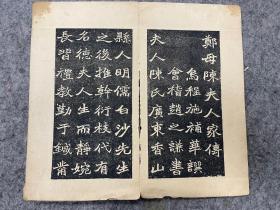 鄭母陳夫人家傳
烏程施補華譔
會稽趙之謙書
夫人陳氏廣東香山
縣人明儒白沙先生
之後推幹衍枝代有
名德夫人生而靜婉
長習禮教勤于鍼黹